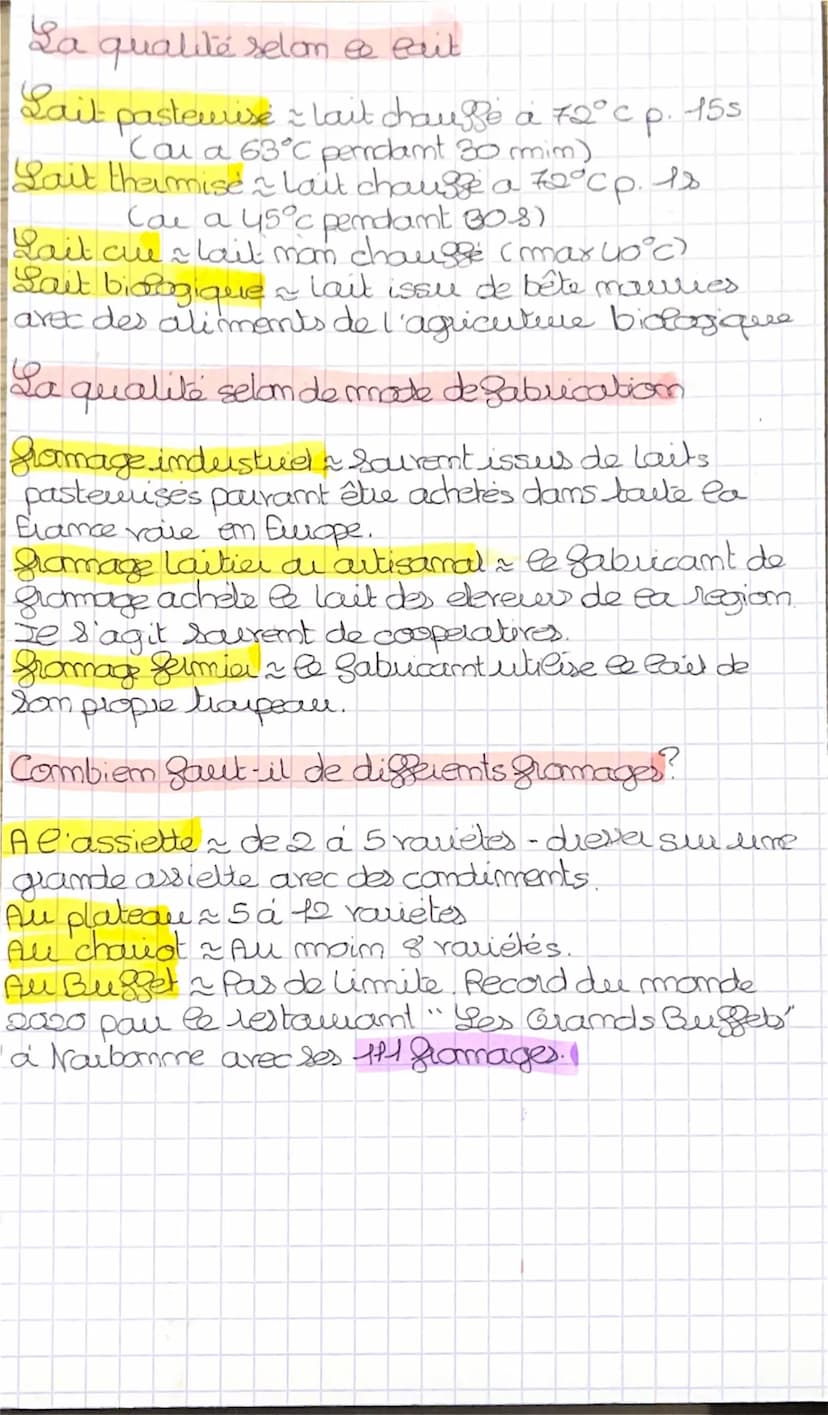 La qualité selon le lait
Lait pasteurisé ≈ lait chauffé à 72°C p. 15s
(ou a 63°C pendant 30 min)
Lait thermisé ≈ Lait chauffé a 72°C p. 1s
(ou a 45°C pendant 30s)
Lait cru ≈ lait non chauffé (max 40°C)
Lait biologique ≈ lait issu de bête nourries
avec des aliments de l'agriculture biologique
La qualité selon de mode de fabrication
fromage industriel ≈ Souvent issus de laits
pasteurisés pouvant être achetés dans toute la
France voire en Europe.
fromage laitier ou artisanal ≈ le fabricant de
fromage achète le lait des eleveurs de la région.
Il s'agit souvent de cooperatives.
fromage fermier ≈ le fabricant utilise le lait de
son propre troupeau.
Combien faut-il de différents fromages?
A l'assiette ≈ de 2 à 5 variétés - dresser sur une
grande assiette avec des condiments.
Au plateau ≈ 5 à 12 variétés
Au chariot ≈ Au moin 8 variétés.
Au Buffet ≈ Pas de limite. Record du monde
2020 par le restaurant "Les Grands Buffets"
à Narbonne avec ses 111 fromages.